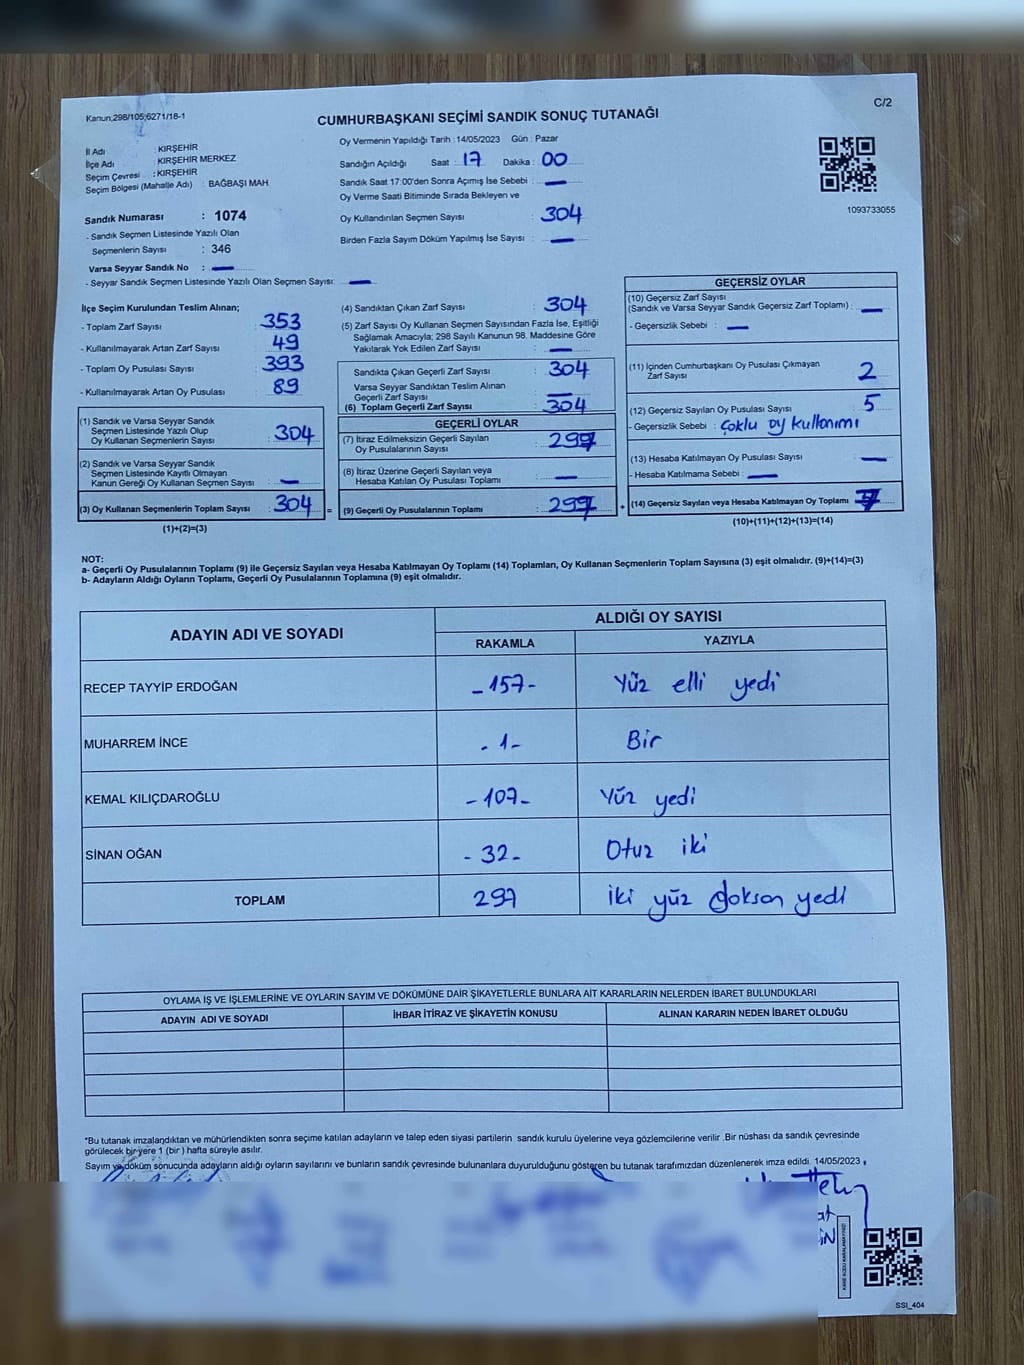 C/2
Kanun;298/105;6271/18-1
CUMHURBAŞKANI SEÇİMİ SANDIK SONUÇ TUTANAĞI
İl Adı : KIRŞEHİR
İlçe Adı : KIRŞEHİR MERKEZ
Seçim Çevresi : KIRŞEHİR
Seçim Bölgesi (Mahalle Adı) : BAĞBAŞI MAH
Sandık Numarası : 1074
- Sandık Seçmen Listesinde Yazılı Olan
Seçmenlerin Sayısı : 346
Varsa Seyyar Sandık No : —
- Seyyar Sandık Seçmen Listesinde Yazılı Olan Seçmen Sayısı: —
Oy Vermenin Yapıldığı Tarih : 14/05/2023 Gün : Pazar
Sandığın Açıldığı Saat : 17 Dakika : 00
Sandık Saat 17:00'den Sonra Açımış İse Sebebi : —
Oy Verme Saati Bitiminde Sırada Bekleyen ve
Oy Kullandırılan Seçmen Sayısı : 304
Birden Fazla Sayım Döküm Yapılmış İse Sayısı : —
1093733055
İlçe Seçim Kurulundan Teslim Alınan;
- Toplam Zarf Sayısı : 353
- Kullanılmayarak Artan Zarf Sayısı : 49
- Toplam Oy Pusulası Sayısı : 393
- Kullanılmayarak Artan Oy Pusulası : 89
(1) Sandık ve Varsa Seyyar Sandık
Seçmen Listesinde Yazılı Olup
Oy Kullanan Seçmenlerin Sayısı : 304
(2) Sandık ve Varsa Seyyar Sandık
Seçmen Listesinde Kayıtlı Olmayan
Kanun Gereği Oy Kullanan Seçmen Sayısı : —
(3) Oy Kullanan Seçmenlerin Toplam Sayısı : 304 =
(1)+(2)=(3)
(4) Sandıktan Çıkan Zarf Sayısı : 304
(5) Zarf Sayısı Oy Kullanan Seçmen Sayısından Fazla İse, Eşitliği
Sağlamak Amacıyla; 298 Sayılı Kanunun 98. Maddesine Göre
Yakılarak Yok Edilen Zarf Sayısı : —
Sandıkta Çıkan Geçerli Zarf Sayısı : 304
Varsa Seyyar Sandıktan Teslim Alınan
Geçerli Zarf Sayısı : —
(6) Toplam Geçerli Zarf Sayısı : 304
GEÇERLİ OYLAR
(7) İtiraz Edilmeksizin Geçerli Sayılan
Oy Pusulalarının Sayısı : 297
(8) İtiraz Üzerine Geçerli Sayılan veya
Hesaba Katılan Oy Pusulası Toplamı : —
(9) Geçerli Oy Pusulalarının Toplamı : 297 +
GEÇERSİZ OYLAR
(10) Geçersiz Zarf Sayısı
(Sandık ve Varsa Seyyar Sandık Geçersiz Zarf Toplamı) : —
- Geçersizlik Sebebi : —
(11) İçinden Cumhurbaşkanı Oy Pusulası Çıkmayan
Zarf Sayısı : 2
(12) Geçersiz Sayılan Oy Pusulası Sayısı : 5
- Geçersizlik Sebebi : Çoklu oy kullanımı
(13) Hesaba Katılmayan Oy Pusulası Sayısı : —
- Hesaba Katılmama Sebebi : —
(14) Geçersiz Sayılan veya Hesaba Katılmayan Oy Toplamı : 7
(10)+(11)+(12)+(13)=(14)
NOT:
a- Geçerli Oy Pusulalarının Toplamı (9) ile Geçersiz Sayılan veya Hesaba Katılmayan Oy Toplamı (14) Toplamları, Oy Kullanan Seçmenlerin Toplam Sayısına (3) eşit olmalıdır. (9)+(14)=(3)
b- Adayların Aldığı Oyların Toplamı, Geçerli Oy Pusulalarının Toplamına (9) eşit olmalıdır.
ADAYIN ADI VE SOYADI ALDIĞI OY SAYISI
RAKAMLA YAZIYLA
RECEP TAYYİP ERDOĞAN -157- Yüz elli yedi
MUHARREM İNCE -1- Bir
KEMAL KILIÇDAROĞLU -107- Yüz yedi
SİNAN OĞAN -32- Otuz iki
TOPLAM 297 İki yüz doksan yedi
OYLAMA İŞ VE İŞLEMLERİNE VE OYLARIN SAYIM VE DÖKÜMÜNE DAİR ŞİKAYETLERLE BUNLARA AİT KARARLARIN NELERDEN İBARET BULUNDUKLARI
ADAYIN ADI VE SOYADI İHBAR İTİRAZ VE ŞİKAYETİN KONUSU ALINAN KARARIN NEDEN İBARET OLDUĞU
*Bu tutanak imzalandıktan ve mühürlendikten sonra seçime katılan adayların ve talep eden siyasi partilerin sandık kurulu üyelerine veya gözlemcilerine verilir .Bir nüshası da sandık çevresinde
görülecek bir yere 1 (bir ) hafta süreyle asılır.
Sayım ve döküm sonucunda adayların aldığı oyların sayılarını ve bunların sandık çevresinde bulunanlara duyurulduğunu gösteren bu tutanak tarafımızdan düzenlenerek imza edildi. 14/05/2023
SSI_404